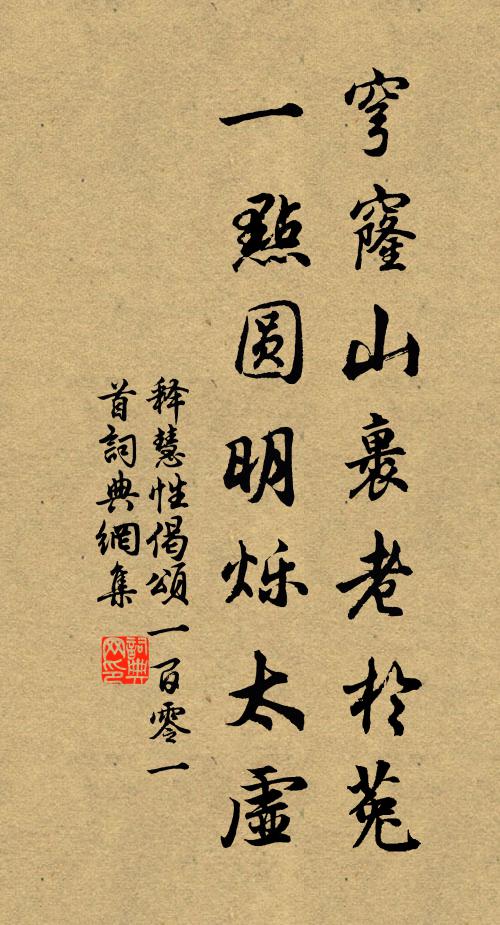 穹窿山裏老於菟
一點圆明烁太虛
释慧性偈頌一百零一
首詞典網集
詞典网印